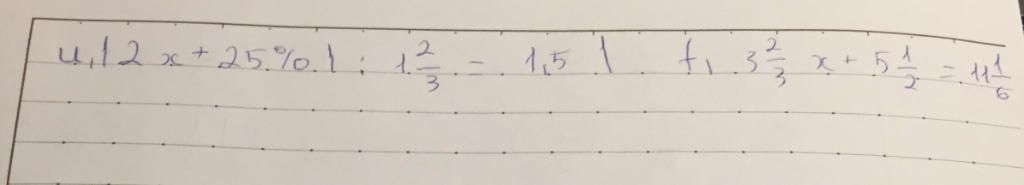 u, | 2x + 25% | : 1 2/3 = 1,5 | f, 3 2/3 x + 5 1/2 = 11 1/6